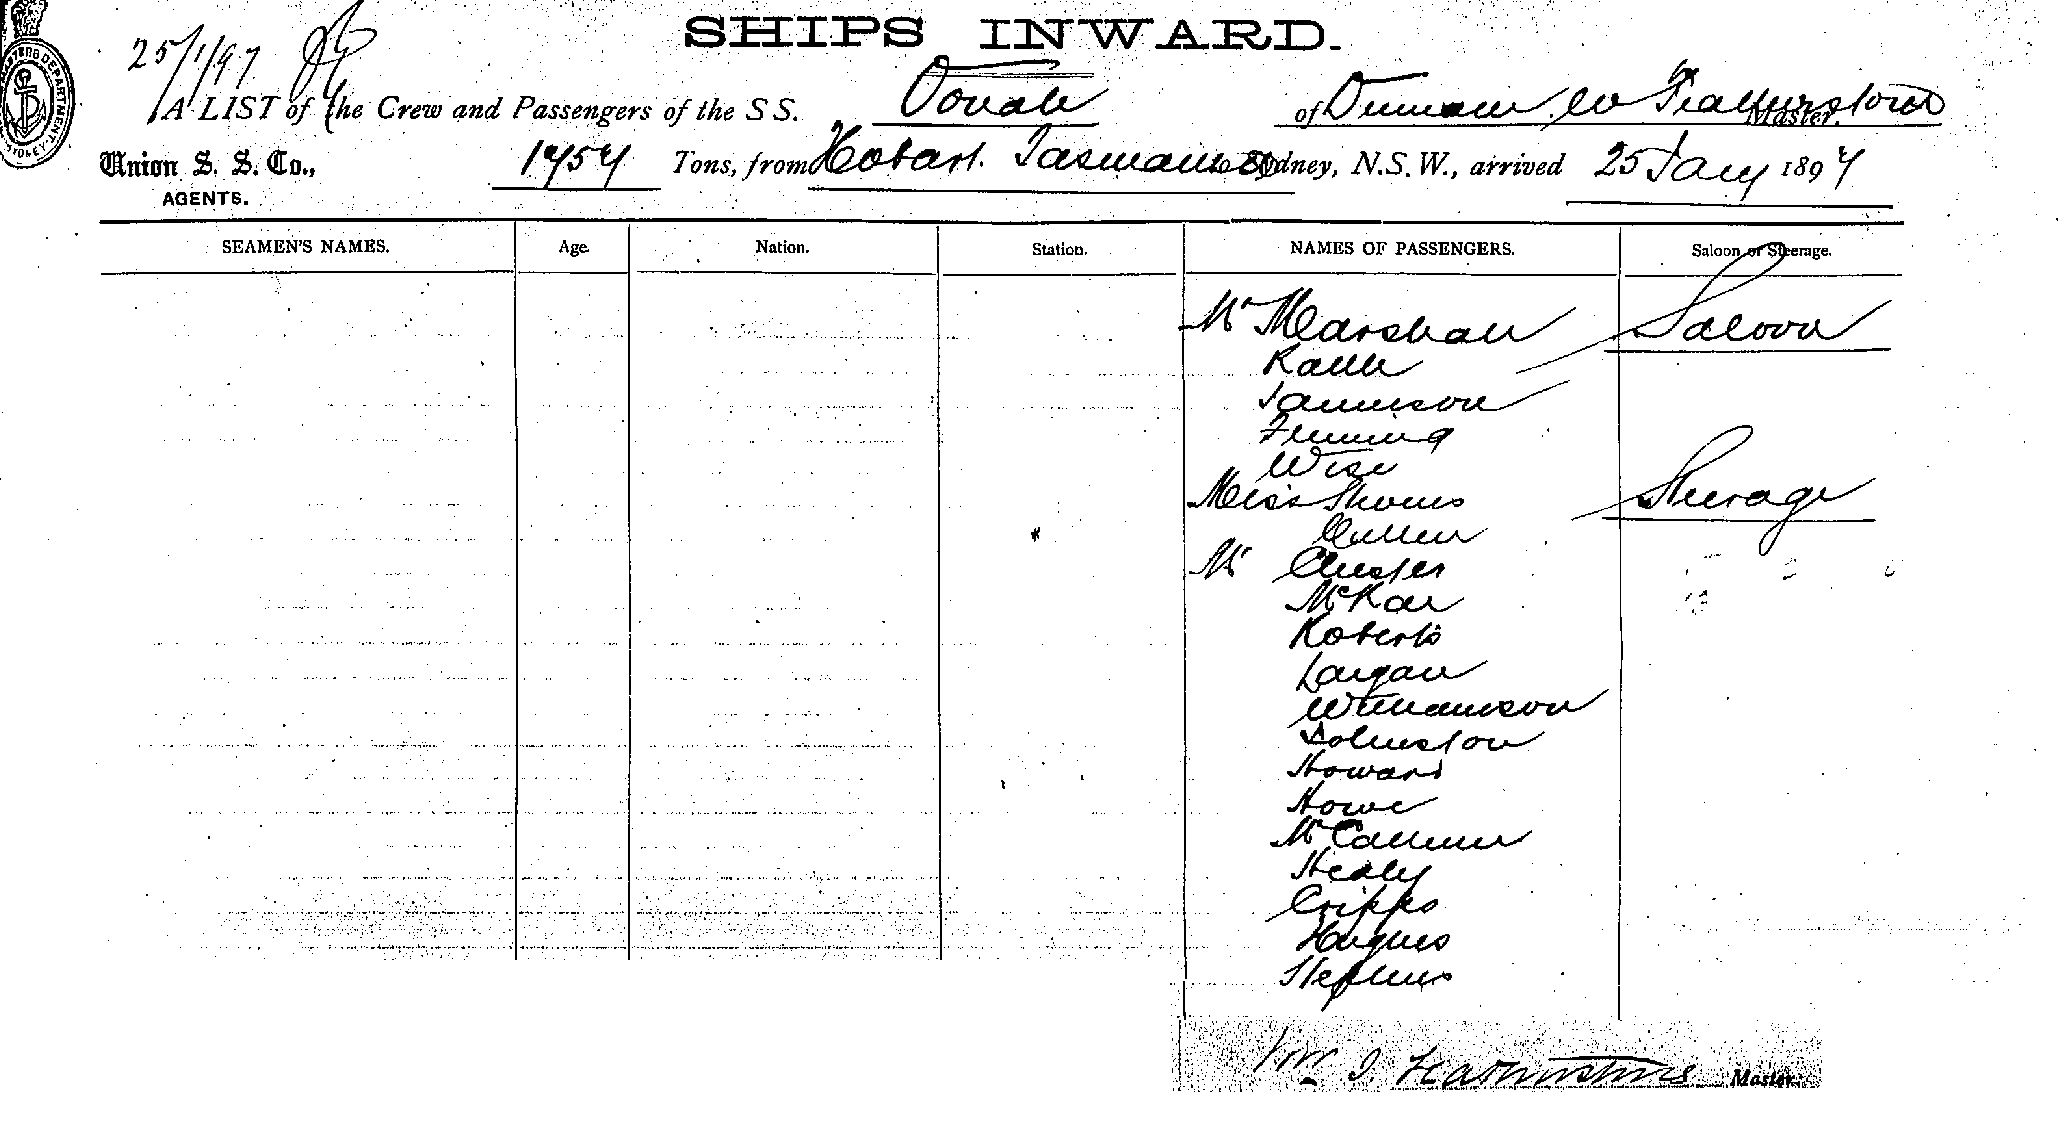 SHIPS INWARD.
25/1/97
A LIST of the Crew and Passengers of the S S. Oonah of Duncan Featherstone Master.
Union S. S. Co., 1757 Tons, from Hobart Tasmania to Sydney, N.S.W., arrived 25 Jany 1897
AGENTS.
SEAMEN'S NAMES. Age. Nation. Station. NAMES OF PASSENGERS. Saloon or Steerage.
Mr Marshall Saloon
Jamieson
Fleming
Wise
Miss Steerage
Cullen
Mr Chester
McKay
Roberts
Largan
Williamson
Johnston
Howard
Howe
McCallum
Healy
Cripps
Hughes
Stephens
Wm Master.